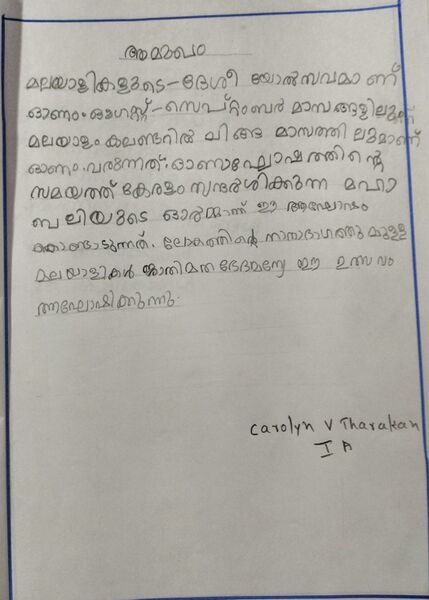 ആമുഖം
മലയാളികളുടെ-ദേശീ യോൽസവമാ ണ്
ഓണം. ഓഗസ്റ്റ്-സെപ്റ്റംബർ മാസങ്ങളിലും
മലയാളം കലണ്ടറിൽ ചിങ്ങ മാസത്തി ലുമാണ്
ഓണം വരുന്നത്. ഓണാഘോഷത്തിന്റെ
സമയത്ത് കേരളം സന്ദർശിക്കുന്ന മഹാ
ബലിയുടെ ഓർമ്മാണ് ഈ ആഘോഷം
കൊണ്ടാടുന്നത്. ലോകത്തിന്റെ നാനാഭാഗത്തുമുള്ള
മലയാളികൾ ജാതിമത ഭേദമന്യേ ഈ ഉത്സവം
ആഘോഷിക്കുന്നു.
Carolyn V Tharakan
I A